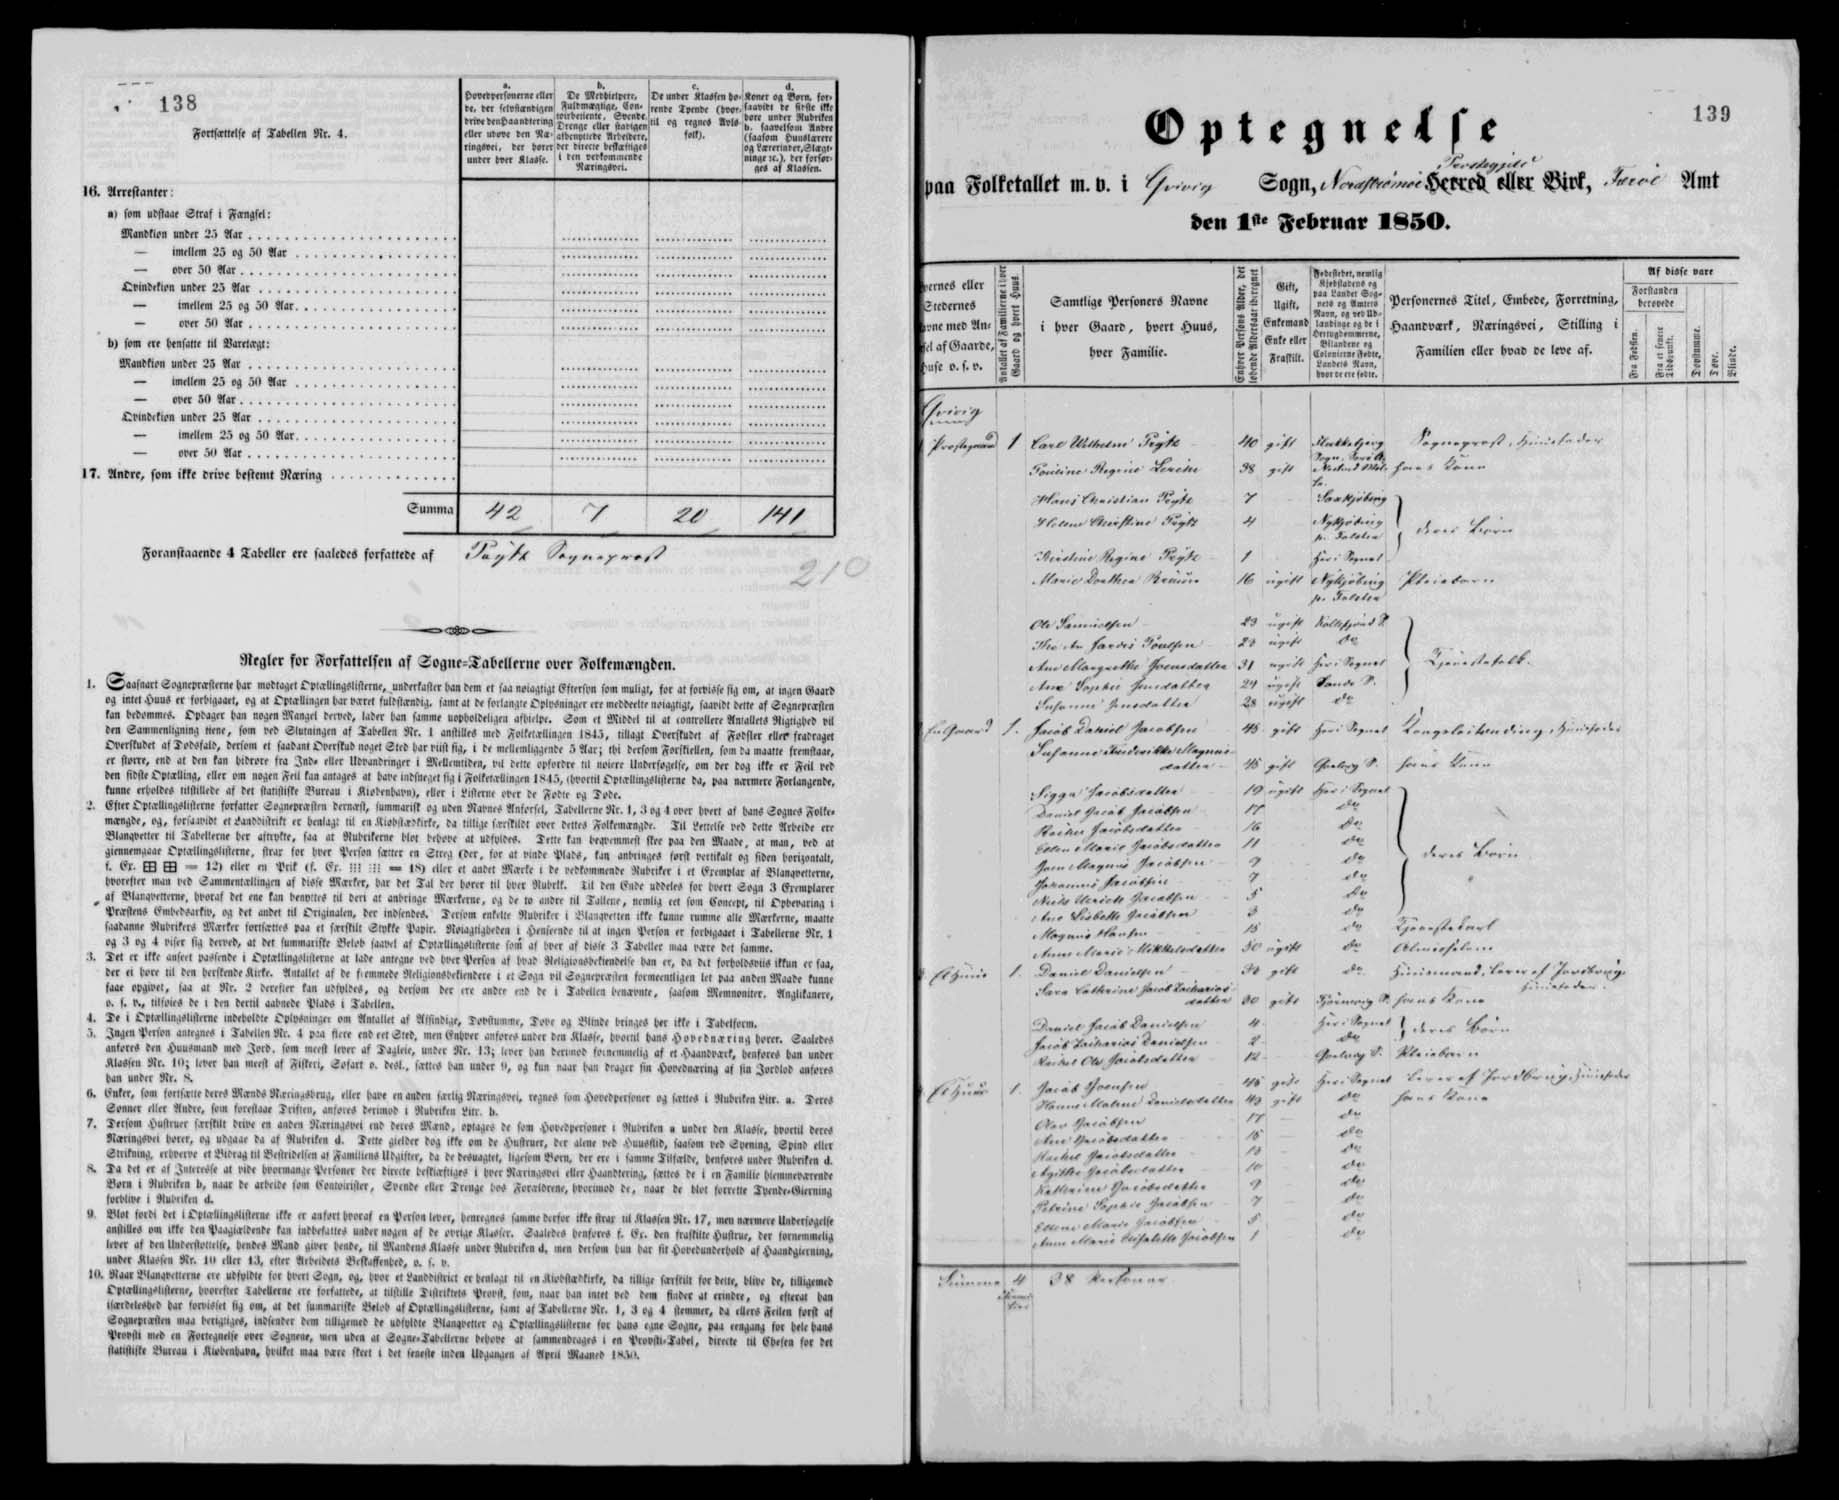 138
Fortsættelse af Tabellen Nr. 4.
a.
Hovedpersonerne eller
de, der selvstændigen
drive den Haandtering
eller udøve den Næ-
ringsvei, der hører
under hver Klasse.
b.
De Medhjelpere,
Fuldmægtige, Con-
toirbetjente, Svende,
Drenge eller stadigen
afbenyttede Arbeidere,
der directe beskæftiges
i den vedkommende
Næringsvei.
c.
De under Klassen hø-
rende Tyende (hvor-
til og regnes Avls-
folk).
d.
Koner og Børn, for-
saavidt de sidste ikke
høre under Rubriken
b. saavelsom Andre
(saasom Huuslærere
og Lærerinder, Slægt-
ninge ꝛc.), der forsør-
ges af Klassen.
16. Arrestanter:
a) som udstaae Straf i Fængsel:
Mandkiøn under 25 Aar
— imellem 25 og 50 Aar
— over 50 Aar
Qvindekiøn under 25 Aar
— imellem 25 og 50 Aar
— over 50 Aar
b) som ere hensatte til Varetægt:
Mandkiøn under 25 Aar
— imellem 25 og 50 Aar
— over 50 Aar
Qvindekiøn under 25 Aar
— imellem 25 og 50 Aar
— over 50 Aar
17. Andre, som ikke drive bestemt Næring
Summa 42 7 20 141
Foranstaaende 4 Tabeller ere saaledes forfattede af Prýtz Sogneprost
210
Regler for Forfattelsen af Sogne-Tabellerne over Folkemængden.
1. Saasnart Sognepræsterne har modtaget Optællingslisterne, underkaster han dem et saa nøiagtigt Eftersyn som muligt, for at forvisse sig om, at ingen Gaard
og intet Huus er forbigaaet, og at Optællingen har været fuldstændig, samt at de forlangte Oplysninger ere meddeelte nøiagtigt, saavidt dette af Sognepræsten
kan bedømmes. Opdager han nogen Mangel derved, lader han samme uopholdeligen afhielpe. Som et Middel til at controllere Antallets Rigtighed vil
den Sammenligning tiene, som ved Slutningen af Tabellen Nr. 1 anstilles med Folketællingen 1845, tillagt Overskudet af Fødsler eller fradraget
Overskudet af Dødsfald, dersom et saadant Overskud noget Sted har viist sig, i de mellemliggende 5 Aar; thi dersom Forskiellen, som da maatte fremstaae,
er større, end at den kan hidrøre fra Ind- eller Udvandringer i Mellemtiden, vil dette opfordre til nøiere Undersøgelse, om der dog ikke er Feil ved
den sidste Optælling, eller om nogen Feil kan antages at have indsneget sig i Folketællingen 1845, (hvortil Optællingslisterne da, paa nærmere Forlangende,
kunne erholdes tilstillede af det statistiske Bureau i Kiøbenhavn), eller i Listerne over de Fødte og Døde.
2. Efter Optællingslisterne forfatter Sognepræsten dernæst, summarisk og uden Navnes Anførsel, Tabellerne Nr. 1, 3 og 4 over hvert af hans Sognes Folke-
mængde, og, forsaavidt et Landdistrikt er henlagt til en Kiøbstædkirke, da tillige særskildt over dettes Folkemængde. Til Lettelse ved dette Arbeide ere
Blanqvetter til Tabellerne her aftrykte, saa at Rubrikerne blot behøve at udfyldes. Dette kan beqvemmest skee paa den Maade, at man, ved at
giennemgaae Optællingslisterne, strax for hver Person sætter en Streg (der, for at vinde Plads, kan anbringes først vertikalt og siden horizontalt,
f. Ex. ⊞ ⊞ = 12) eller en Prik (f. Ex. ⁝⁝⁝ ⁝⁝⁝ = 18) eller et andet Mærke i de vedkommende Rubriker i et Exemplar af Blanqvetterne,
hvorefter man ved Sammentællingen af disse Mærker, har det Tal der hører til hver Rubrik. Til den Ende uddeles for hvert Sogn 3 Exemplarer
af Blanqvetterne, hvoraf det ene kan benyttes til deri at anbringe Mærkerne, og de to andre til Tallene, nemlig eet som Concept, til Opbevaring i
Præstens Embedsarkiv, og det andet til Originalen, der indsendes. Dersom enkelte Rubriker i Blanqvetten ikke kunne rumme alle Mærkerne, maatte
saadanne Rubrikers Mærker fortsættes paa et særskilt Stykke Papir. Nøiagtigheden i Henseende til at ingen Person er forbigaaet i Tabellerne Nr. 1
og 3 og 4 viser sig derved, at det summariske Beløb saavel af Optællingslisterne som af hver af disse 3 Tabeller maa være det samme.
3. Det er ikke anseet passende i Optællingslisterne at lade antegne ved hver Person af hvad Religionsbekiendelse han er, da det forholdsviis ikkun er faa,
der ei høre til den herskende Kirke. Antallet af de fremmede Religionsbekiendere i et Sogn vil Sognepræsten formeentligen let paa anden Maade kunne
faae opgivet, saa at Nr. 2 derefter kan udfyldes, og dersom der ere andre end de i Tabellen benævnte, saasom Memnoniter, Anglikanere,
o. s. v., tilføies de i den dertil aabnede Plads i Tabellen.
4. De i Optællingslisterne indeholdte Oplysninger om Antallet af Afsindige, Døvstumme, Døve og Blinde bringes her ikke i Tabelform.
5. Ingen Person antegnes i Tabellen Nr. 4 paa flere end eet Sted, men Enhver anføres under den Klasse, hvortil hans Hovednæring hører. Saaledes
anføres den Huusmand med Jord, som meest lever af Dagleie, under Nr. 13; lever han derimod fornemmelig af et Haandværk, henføres han under
Klassen Nr. 10; lever han meest af Fiskeri, Søfart o. desl., sættes han under 9, og kun naar han drager sin Hovednæring af sin Jordlod anføres
han under Nr. 8.
6. Enker, som fortsætte deres Mænds Næringsbrug, eller have en anden særlig Næringsvei, regnes som Hovedpersoner og sættes i Rubriken Litr. a. Deres
Sønner eller Andre, som forestaae Driften, anføres derimod i Rubriken Litr. b.
7. Dersom Hustruer særskilt drive en anden Næringsvei end deres Mænd, optages de som Hovedpersoner i Rubriken a under den Klasse, hvortil deres
Næringsvei hører, og udgaae da af Rubriken d. Dette gielder dog ikke om de Hustruer, der alene ved Huusflid, saasom ved Spening, Spind eller
Strikning, erhverve et Bidrag til Bestridelsen af Familiens Udgifter, da de desuagtet, ligesom Børn, der ere i samme Tilfælde, henføres under Rubriken d.
8. Da det er af Interesse at vide hvormange Personer der directe beskiæftiges i hver Næringsvei eller Haandtering, sættes de i en Familie hiemmeværende
Børn i Rubriken b, naar de arbeide som Contoirister, Svende eller Drenge hos Forældrene, hvorimod de, naar de blot forrette Tyende-Gierning
forblive i Rubriken d.
9. Blot fordi det i Optællingslisterne ikke er anført hvoraf en Person lever, henregnes samme derfor ikke strax til Klassen Nr. 17, men nærmere Undersøgelse
anstilles om ikke den Paagiældende kan indbefattes under nogen af de øvrige Klasser. Saaledes henføres f. Ex. den fraskilte Hustrue, der fornemmelig
lever af den Understøttelse, hendes Mand giver hende, til Mandens Klasse under Rubriken d, men dersom hun har sit Hovedunderhold af Haandgierning,
under Klassen Nr. 10 eller 13, efter Arbeidets Beskaffenhed, o. s. v.
10. Naar Blanqvetterne ere udfyldte for hvert Sogn, og, hvor et Landdistrict er henlagt til en Kiøbstædkirke, da tillige særskilt for dette, blive de, tilligemed
Optællingslisterne, hvorefter Tabellerne ere forfattede, at tilstille Distriktets Provst, som, naar han intet ved dem finder at erindre, og efterat han
isærdeleshed har forvisset sig om, at det summariske Beløb af Optællingslisterne, samt af Tabellerne Nr. 1, 3 og 4 stemmer, da ellers Feilen først af
Sognepræsten maa berigtiges, indsender dem tilligemed de udfyldte Blanqvetter og Optællingslisterne for hans egne Sogne, paa eengang for hele hans
Provsti med en Fortegnelse over Sognene, men uden at Sogne-Tabellerne behøve at sammendrages i en Provsti-Tabel, directe til Chefen for det
statistiske Bureau i Kiøbenhavn, hvilket maa være skeet i det seneste inden Udgangen af April Maaned 1850.
139
Optegnelse
Præstegjeld
paa Folketallet m. v. i Qvivig Sogn, Nordstrømøe Herred eller Birk, Færöe Amt
den 1ste Februar 1850.
Samtlige Personers Navne
i hver Gaard, hvert Huus,
hver Familie.
Antallet af Familierne i hver
Gaard og hvert Huus.
Enhver Persons Alder, det
løbende Aldersaar iberegnet
Gift,
Ugift,
Enkemand
Enke eller
Fraskilt.
Fødestedet, nemlig
Kjøbstadens og
paa Landet Sog-
nets og Amtets
Navn, og ved Ud-
lændinge og de i
Hertugdømmerne,
Bilandene og
Colonierne Fødte,
Landets Navn,
hvor de ere fødte.
Personernes Titel, Embede, Forretning,
Haandværk, Næringsvei, Stilling i
Familien eller hvad de leve af.
Af disse vare
Forstanden
berøvede
Fra Fødslen.
Fra et senere
Tidspunkt.
Døvstumme.
Døve.
Blinde.
Qvivig
Præstegaard 1 Carl Wilhelm Prýtz 40 gift Sogneprost, Huusfader
Pouline Regine Lerche 38 gift hans Kone
Hans Christian Prýtz 7 Saxkjøbing
Helene Christine Prýtz 4 Nykjøbing p. Falster deres Børn
Kirstine Regine Prýtz 1 Her i Sognet
Marie Dorthea 16 ugift Nykjøbing p. Falster Pleiebarn
Ole Samuelsen 23 ugift Kollefjord S.
Poulsen 23 ugift do
Ane Margrethe Joensdatter 31 ugift Her i Sognet Tjenestefolk.
Ane Sophie Jensdatter 24 ugift Sande S.
Susanne Jensdatter 28 ugift do
En Gaard 1. Jacob Daniel Jacobsen 45 gift Her i Sognet Huusfader
Susanne Frederikke Magnus-
datter 45 gift hans Kone
Sigga Jacobsdatter 19 ugift Her i Sognet
Daniel Jacob Jacobsen 17 do
Rachel Jacobsdatter 16 do
Ellen Marie Jacobsdatter 11 do
Joen Magnus Jacobsen 9 do deres Børn
Johannes Jacobsen 7 do
Niels Ulrich Jacobsen 5 do
Ane Lisbeth Jacobsen 3 do
Magnus Hansen 15 do Tjenestekarl
Anne Marie Mikkelsdatter 50 ugift do Almisselem
Et Huus 1. Daniel Danielsen 32 gift do Huusmand, lever af Jordbrug,
Huusfader.
Sara Cathrine Jacob Zacharias-
datter 30 gift hans Kone
Daniel Jacob Danielsen 4 Her i Sognet deres Børn
Jacob Zacharias Danielsen 2 do
Rachel Ole Jacobsdatter 12 Pleiebarn
Et Huus 1. Jacob Joensen 45 gift Her i Sognet lever af Jordbrug, Huusfader
Hanne Malene Danielsdatter 43 gift do hans Kone
Olav Jacobsen 17 do
Ane Jacobsdatter 15 do
Rachel Jacobsdatter 13 do
Agithe Jacobsdatter 10 do
Kathrine Jacobsdatter 9 do
Petrine Sophie Jacobsen 7 do
Ellene Marie Jacobsen 5 do
Anne Marie Elisabeth Jacobsen 1 do
Summa 4 Familier 38 Personer